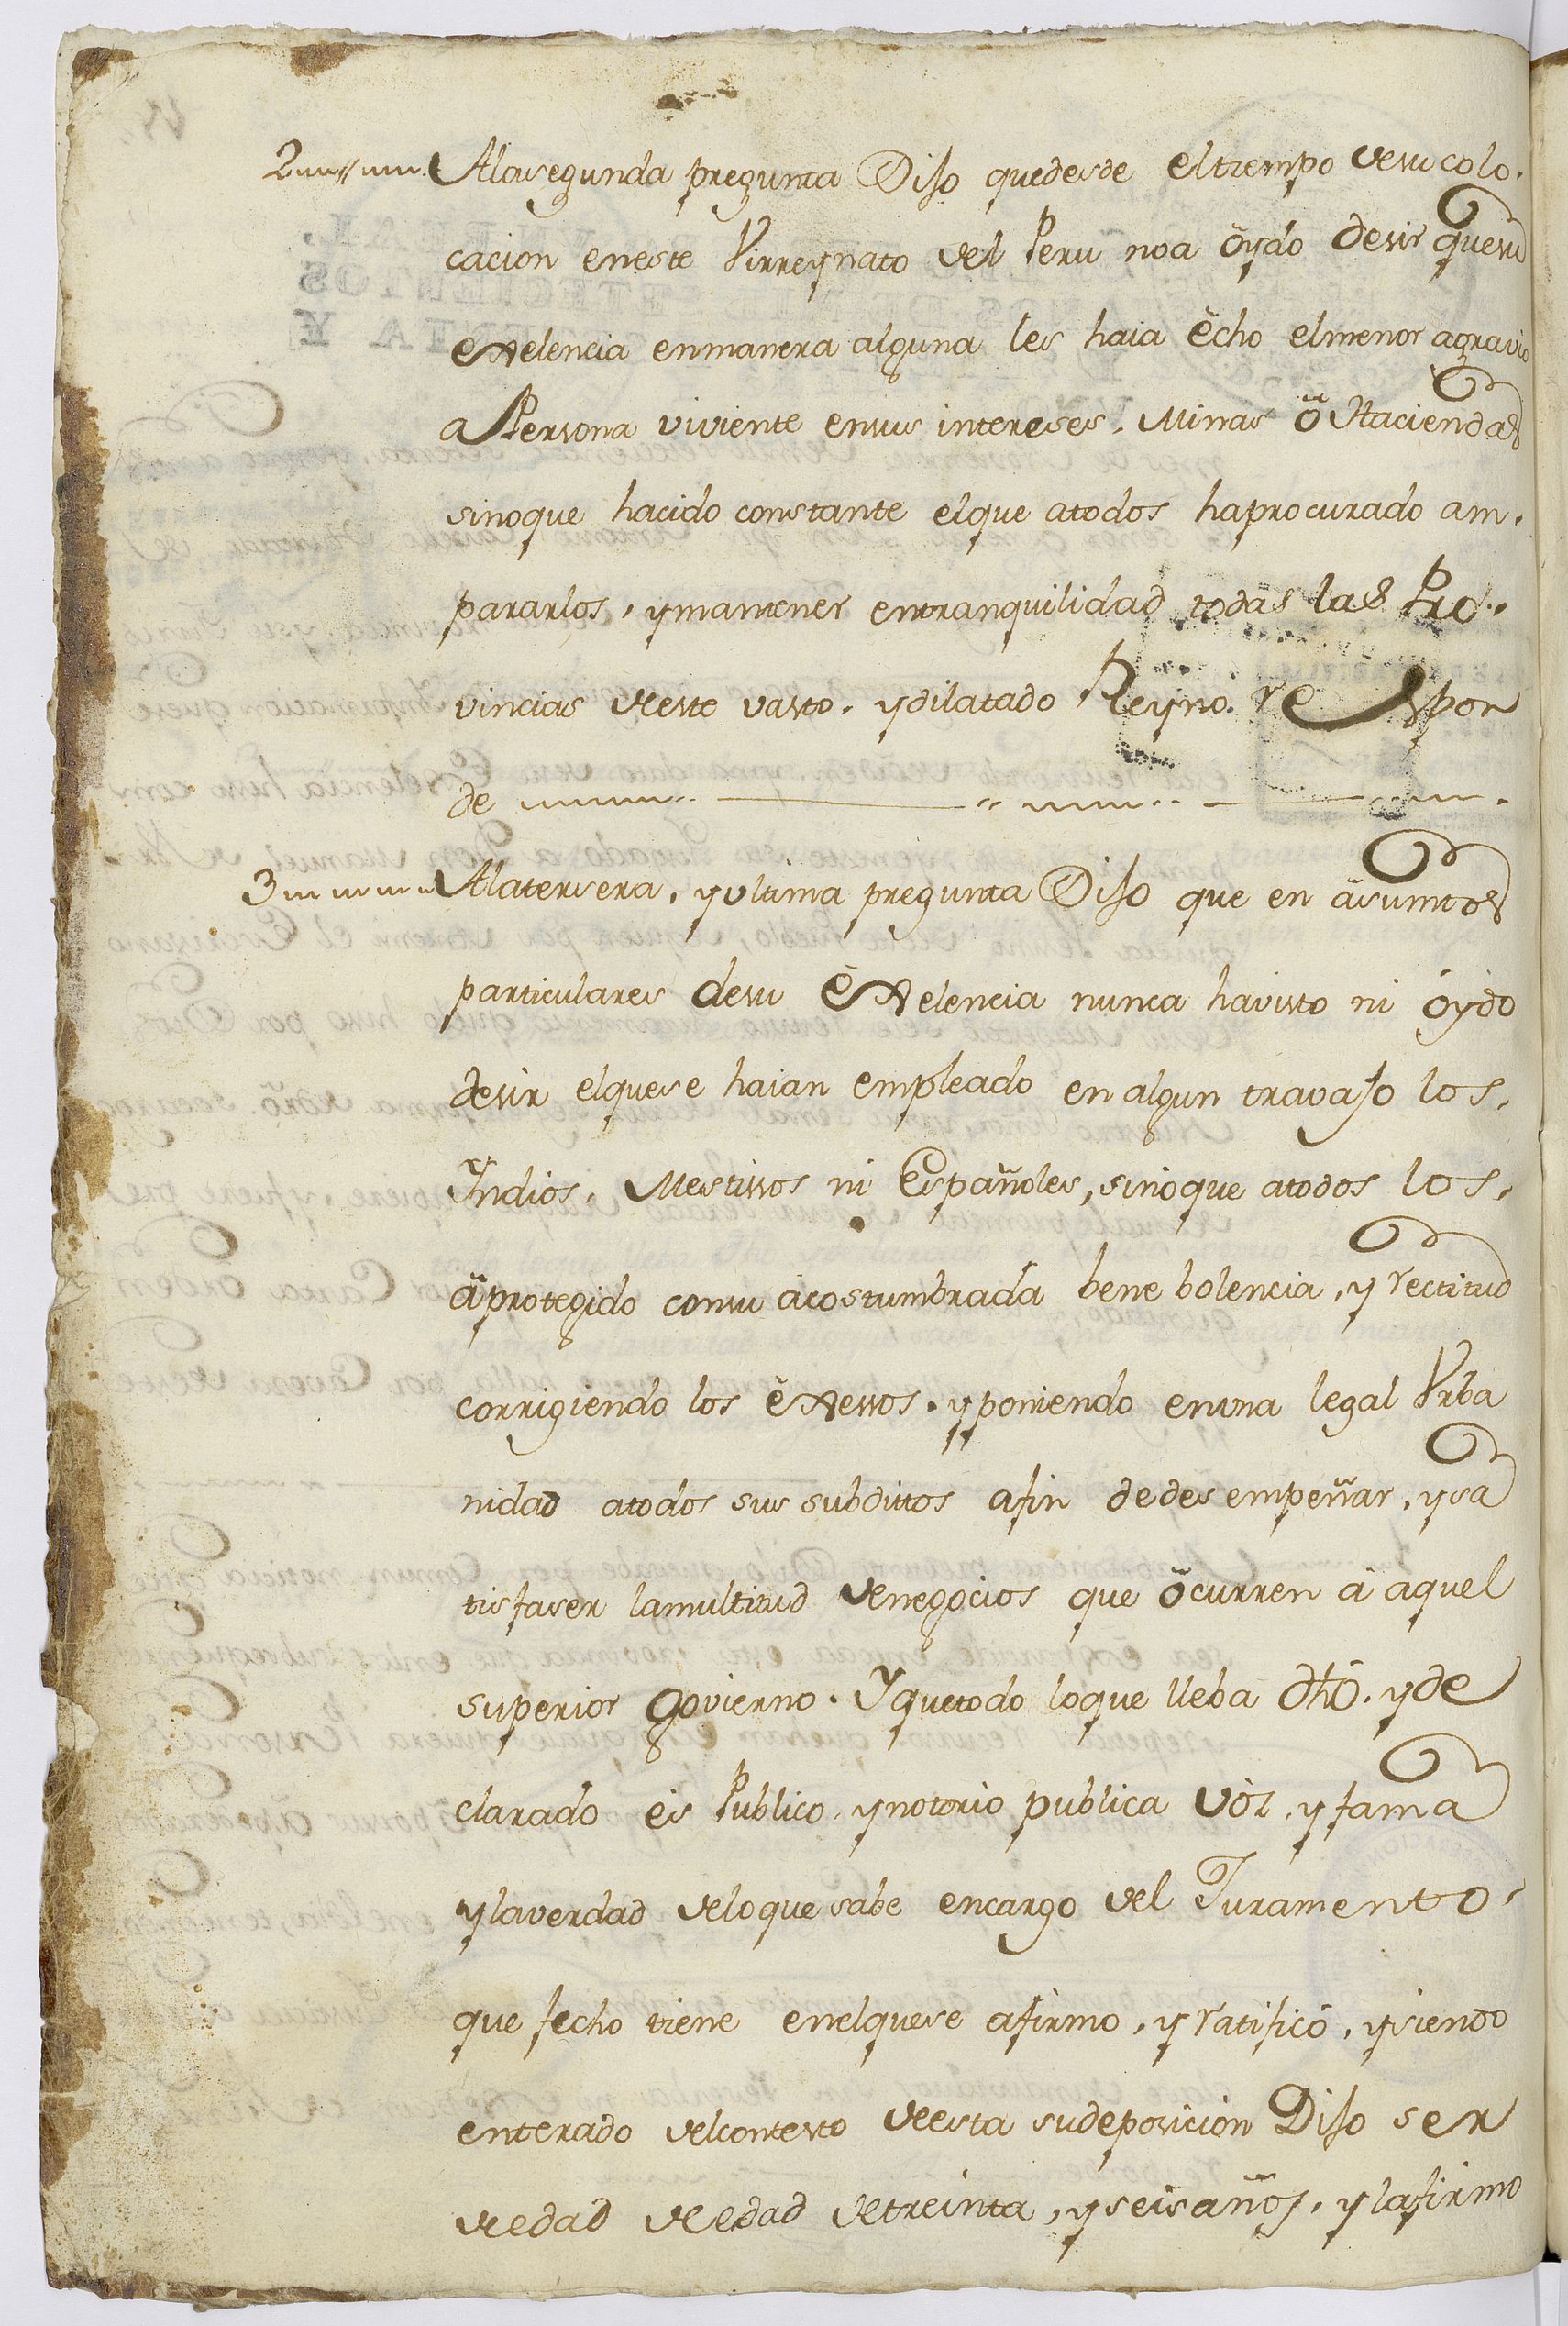 2 Alasegunda pregunta Dijo quedesde eltiempo desu colo-
cacion eneste Virreynato del Peru noa öydo desir quesu
exelencia enmanera alguna les haia êcho elmenor agravio
aPersona viviente ensus intereses, Minas ö Haciendas
sinoque hacido constante elque atodos haprocurado am-
pararlos, ymantener entranquilidad todas las Pro-
vincias deste vasto, ydilatado Reyno. respon
de
3 Alatersera, yultima pregunta Dijo que en äsuntos
particulares desu êxelencia nunca havisto ni óydo
desir elquese haian empleado en algun travajo los,
Yndios, Mestissos ni Españoles, sinoque atodos los,
äprotegido consu äcostumbrada bene bolencia, y rectitud
corrigiendo los êxessos, yponiendo enuna legal Vrba
nidad atodos sus subdittos afin dedesempeñar, ysa
tisfaser lamultitud denegocios que öcurren ä aquel
superior Govierno. Yquetodo loque lleba dhô. yde
clarado es Publico, ynotorio publica vòz, yfama
ylaverdad deloque sabe encargo del Juramento
que fecho tiene enelquese afirmo, y ratificó, ysiendo
enterado delcontesto deesta sudeposicion Dijo ser
deedad deedad detreinta, yseis años, ylafirmo